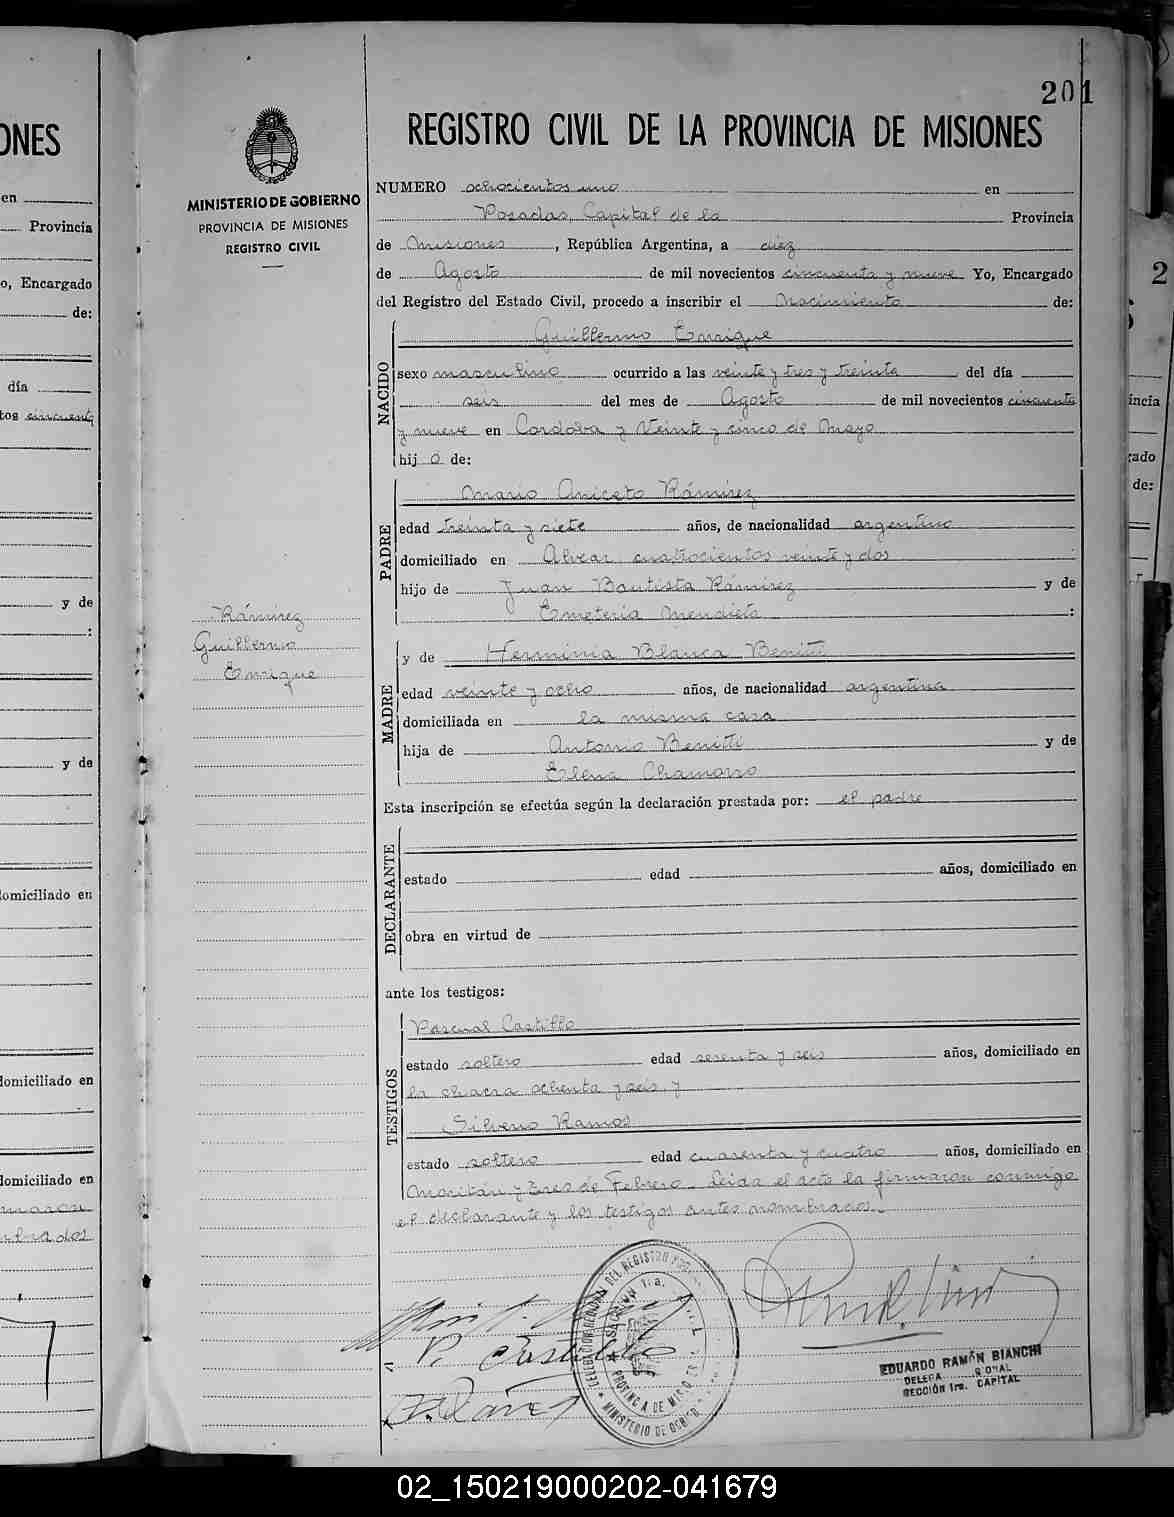 201
REGISTRO CIVIL DE LA PROVINCIA DE MISIONES
MINISTERIO DE GOBIERNO
PROVINCIA DE MISIONES
REGISTRO CIVIL
NUMERO ochocientos uno en
Posadas, Capital de la Provincia
de Misiones, República Argentina, a diez
de Agosto de mil novecientos cincuenta y nueve Yo, Encargado
del Registro del Estado Civil, procedo a inscribir el Nacimiento de:
NACIDO
Guillermo Enrique
sexo masculino ocurrido a las veinte y tres y treinta del día
seis del mes de Agosto de mil novecientos cincuenta
y nueve en Cordoba y Veinte y cinco de Mayo
hij o de:
PADRE
Mario Aniceto Rámirez
edad treinta y siete años, de nacionalidad argentino
domiciliado en Alvear cuatrocientos veinte y dos
hijo de Juan Bautista Rámirez y de
Emeteria Mendieta :
Rámirez
Guillermo
Enrique
MADRE
y de Herminia Blanca Benitti
edad veinte y ocho años, de nacionalidad argentina
domiciliada en la misma casa
hija de Antonio Benitti y de
Elena Chamorro
Esta inscripción se efectúa según la declaración prestada por: el padre
DECLARANTE
estado edad años, domiciliado en
obra en virtud de
ante los testigos:
TESTIGOS
Pascual Castillo
estado soltero edad sesenta y seis años, domiciliado en
la chacra ochenta y seis, y
Silverio Ramos
estado soltero edad cuarenta y cuatro años, domiciliado en
y tres de Febrero. Leída el acta la firmaron conmigo
el declarante y los testigos antes nombrados.
P. Castillo
PROVINCIA DE MISIONES
MINISTERIO DE GOBIERNO
EDUARDO RAMÓN BIANCHI
SECCIÓN 1ra. CAPITAL
ONES
en
Provincia
o, Encargado
de:
día
tos cincuenta
y de
:
y de
domiciliado en
domiciliado en
domiciliado en
2
incia
cado
de:
02_150219000202-041679